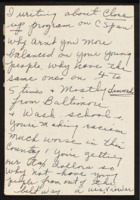 I writing about Close
up program on C Span
Why arent you more
balanced on your young
people why have the
same ones on 4 to
5 times & Mostly
From Baltimore
& Wash school.
Your making racism
much worse in this
country! Your getting
our
why not have your
from out
Wis. Viewer